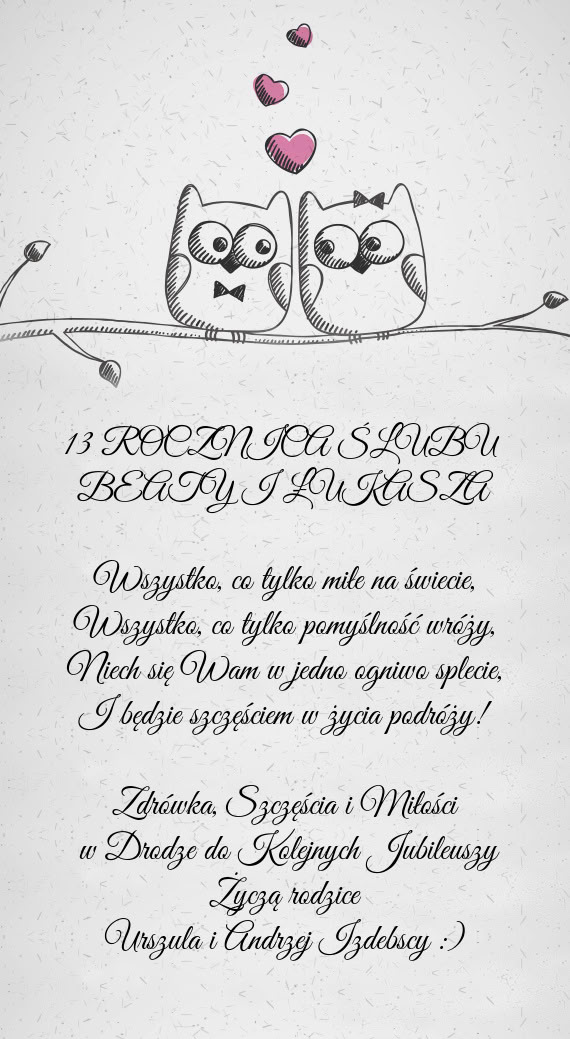 13 ROCZNICA ŚLUBU
BEATY I ŁUKASZA
Wszystko, co tylko miłe na świecie,
Wszystko, co tylko pomyślność wróży,
Niech się Wam w jedno ogniwo splecie,
I będzie szczęściem w życia podróży!
Zdrówka, Szczęścia i Miłości
w Drodze do Kolejnych Jubileuszy
Życzą rodzice
Urszula i Andrzej Izdebscy :)